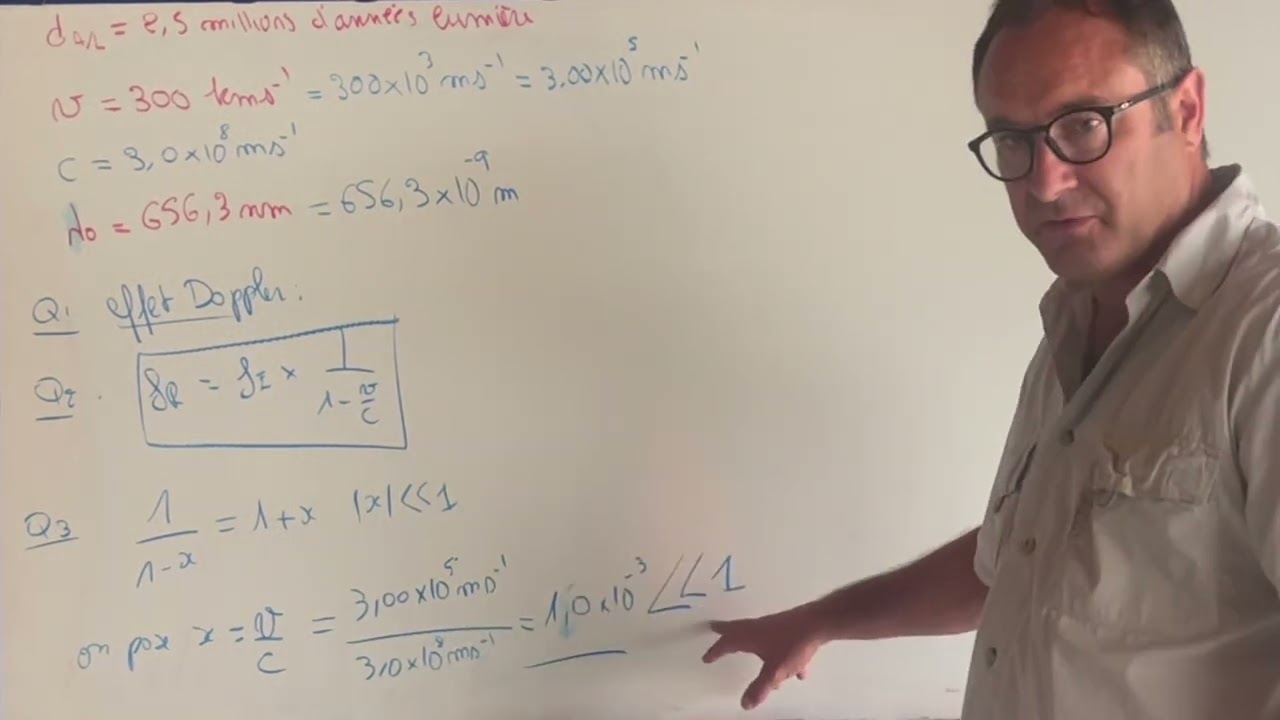 dₐₙ = 2,5 millions d'années lumière
v = 300 kms⁻¹ = 300×10³ ms⁻¹ = 3,00×10⁵ ms⁻¹
C = 3,0×10⁸ ms⁻¹
λ₀ = 656,3 nm = 656,3×10⁻⁹ m
Q1 effet Doppler :
Q2. f_R = f_E × 1/(1 - v/c)
Q3 1/(1-x) = 1+x |x|<<1
on pose x = v/c = 3,00×10⁵ ms⁻¹ / 3,0×10⁸ ms⁻¹ = 1,0×10⁻³ << 1